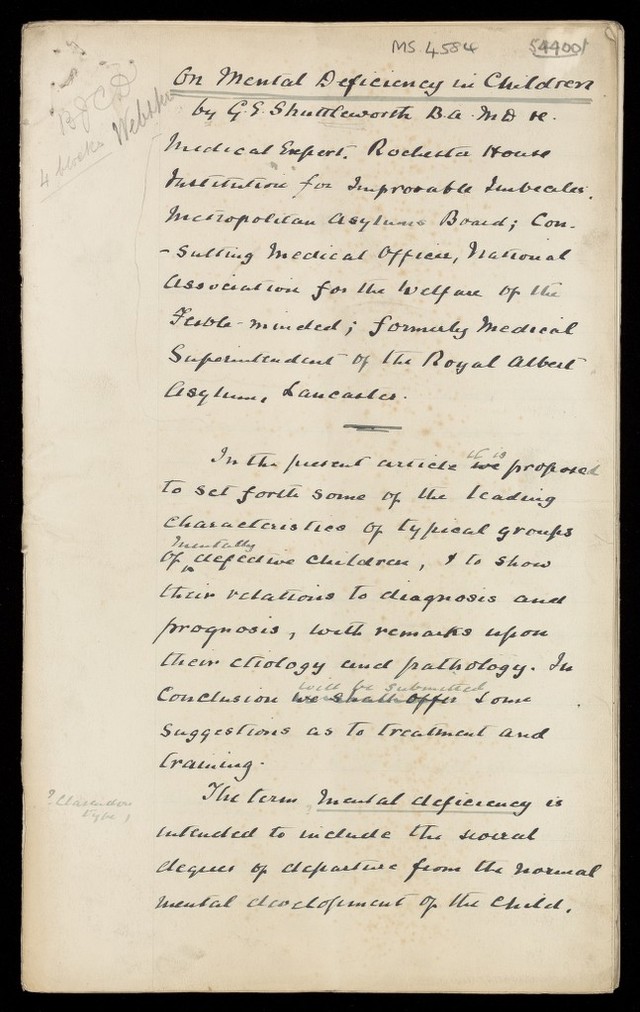 MS. 4584
54400
B J C D
Webster
4 blocks
On Mental Deficiency in Children
by G. E. Shuttleworth B.A. M.D &c.
Medical Expert, Rochester House
Institution for Improvable Imbeciles,
Metropolitan Asylums Board; Con-
-sulting Medical Officer, National
Association for the Welfare of the
Feeble-minded; formerly Medical
Superintendent of the Royal Albert
Asylum, Lancaster.
it is
In the present article we proposed
to set forth some of the leading
characteristics of typical groups
mentally
of defective children, & to show
their relations to diagnosis and
prognosis, with remarks upon
their etiology and pathology. In
will be submitted
Conclusion we shall offer some
suggestions as to treatment and
training.
? Clarendon
type,
The term mental deficiency is
intended to include the several
degrees of departure from the normal
mental development of the child,